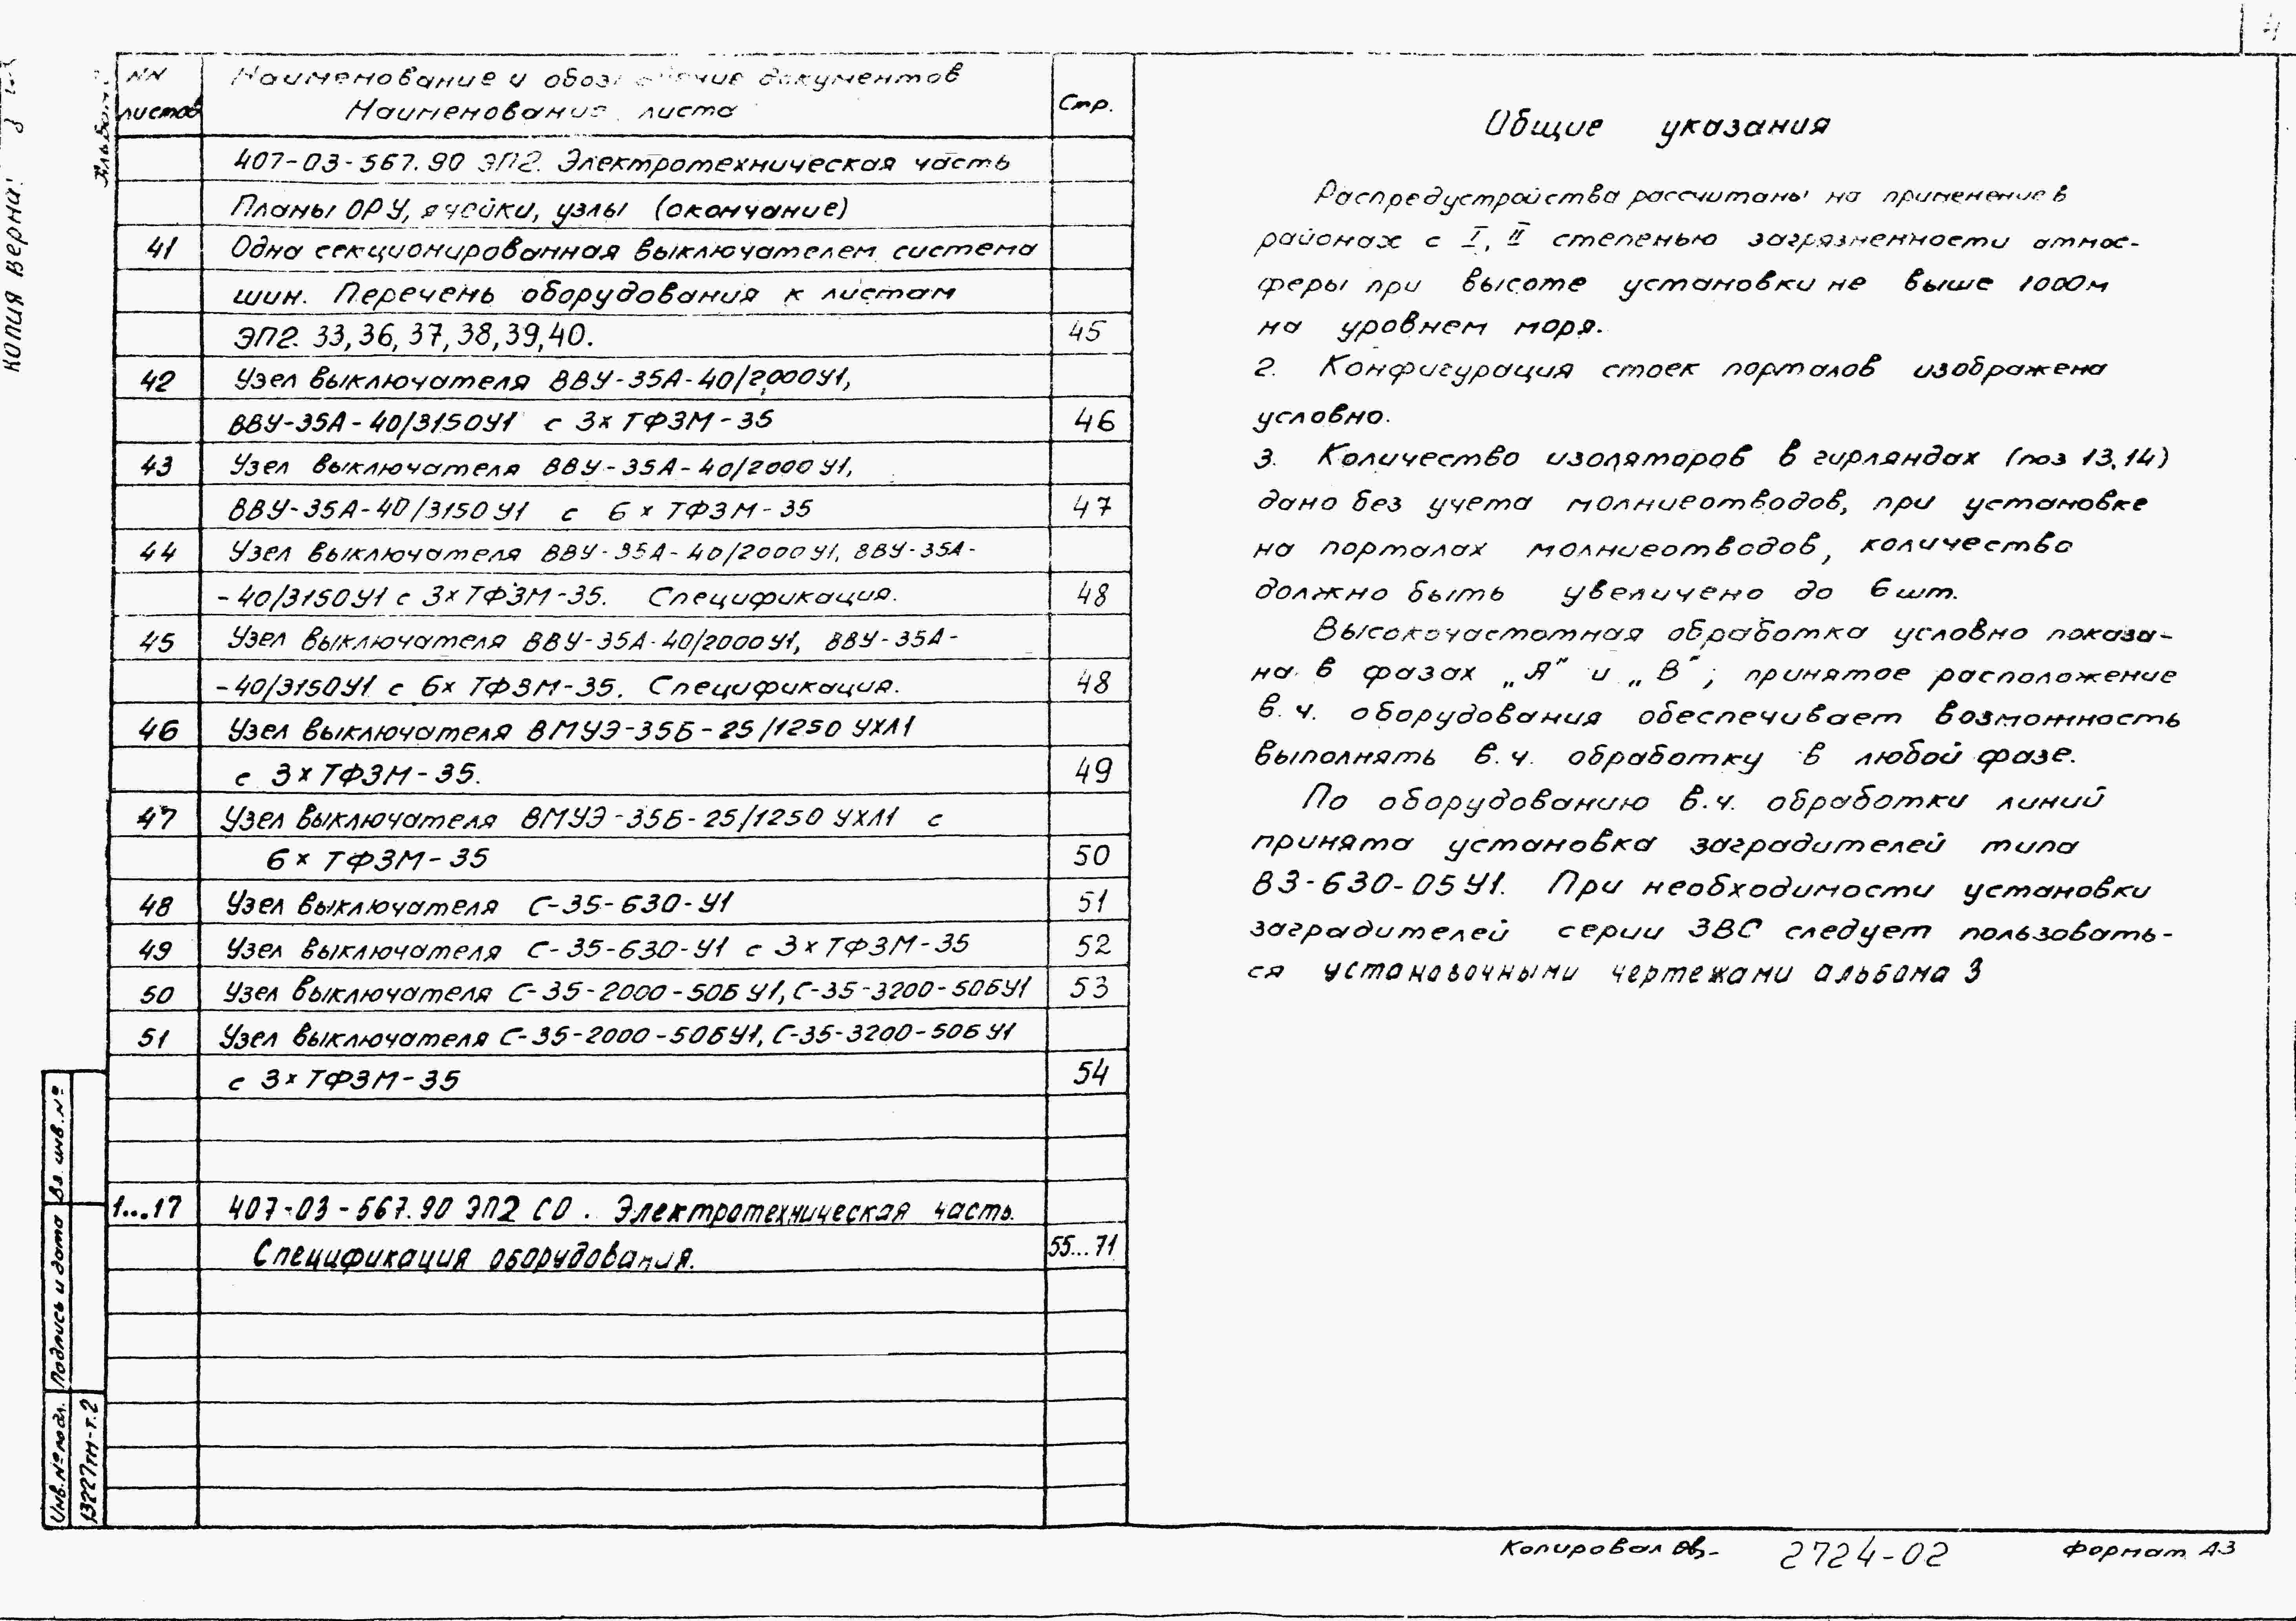 4
копия верна:
Альбом
NN
листов
Наименование и обозначение документов
Наименование листа
Стр.
407-03-567.90 ЭП2. Электротехническая часть
Планы ОРУ, ячейки, узлы (окончание)
41 Одна секционированная выключателем система
шин. Перечень оборудования к листам
ЭП2. 33, 36, 37, 38, 39, 40. 45
42 Узел выключателя ВВУ-35А-40/2000У1,
ВВУ-35А-40/3150У1 с 3х ТФЗМ-35 46
43 Узел выключателя ВВУ-35А-40/2000У1,
ВВУ-35А-40/3150У1 с 6х ТФЗМ-35 47
44 Узел выключателя ВВУ-35А-40/2000У1, ВВУ-35А-
-40/3150У1 с 3х ТФЗМ-35. Спецификация. 48
45 Узел выключателя ВВУ-35А-40/2000У1, ВВУ-35А-
-40/3150У1 с 6х ТФЗМ-35. Спецификация. 48
46 Узел выключателя ВМУЭ-35Б-25/1250 УХЛ1
с 3х ТФЗМ-35. 49
47 Узел выключателя ВМУЭ-35Б-25/1250 УХЛ1 с
6х ТФЗМ-35 50
48 Узел выключателя С-35-630-У1 51
49 Узел выключателя С-35-630-У1 с 3х ТФЗМ-35 52
50 Узел выключателя С-35-2000-50Б У1, С-35-3200-50БУ1 53
51 Узел выключателя С-35-2000-50БУ1, С-35-3200-50Б У1
с 3х ТФЗМ-35 54
1...17 407-03-567.90 ЭП2 СО. Электротехническая часть.
Спецификация оборудования. 55...71
Общие указания
Распредустройства рассчитаны на применение в
районах с I, II степенью загрязненности атмос-
феры при высоте установки не выше 1000м
на уровнем моря.
2. Конфигурация стоек порталов изображена
условно.
3. Количество изоляторов в гирляндах (поз 13,14)
дано без учета молниеотводов, при установке
на порталах молниеотводов, количество
должно быть увеличено до 6 шт.
Высокочастотная обработка условно показа-
на в фазах „А" и „В"; принятое расположение
в.ч. оборудования обеспечивает возможность
выполнять в.ч. обработку в любой фазе.
По оборудованию в.ч. обработки линий
принята установка заградителей типа
ВЗ-630-05У1. При необходимости установки
заградителей серии ЗВС следует пользовать-
ся установочными чертежами альбома 3
Инв.№ подл. Подпись и дата Вз. инв. №
13227тм-т.2
Копировал 2724-02 Формат А3